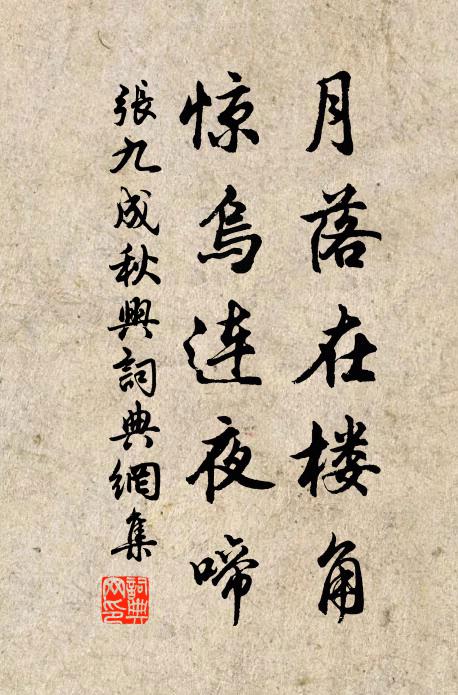 月落在楼角
惊乌连夜啼
張九成秋興詞典網集
詞典
网印